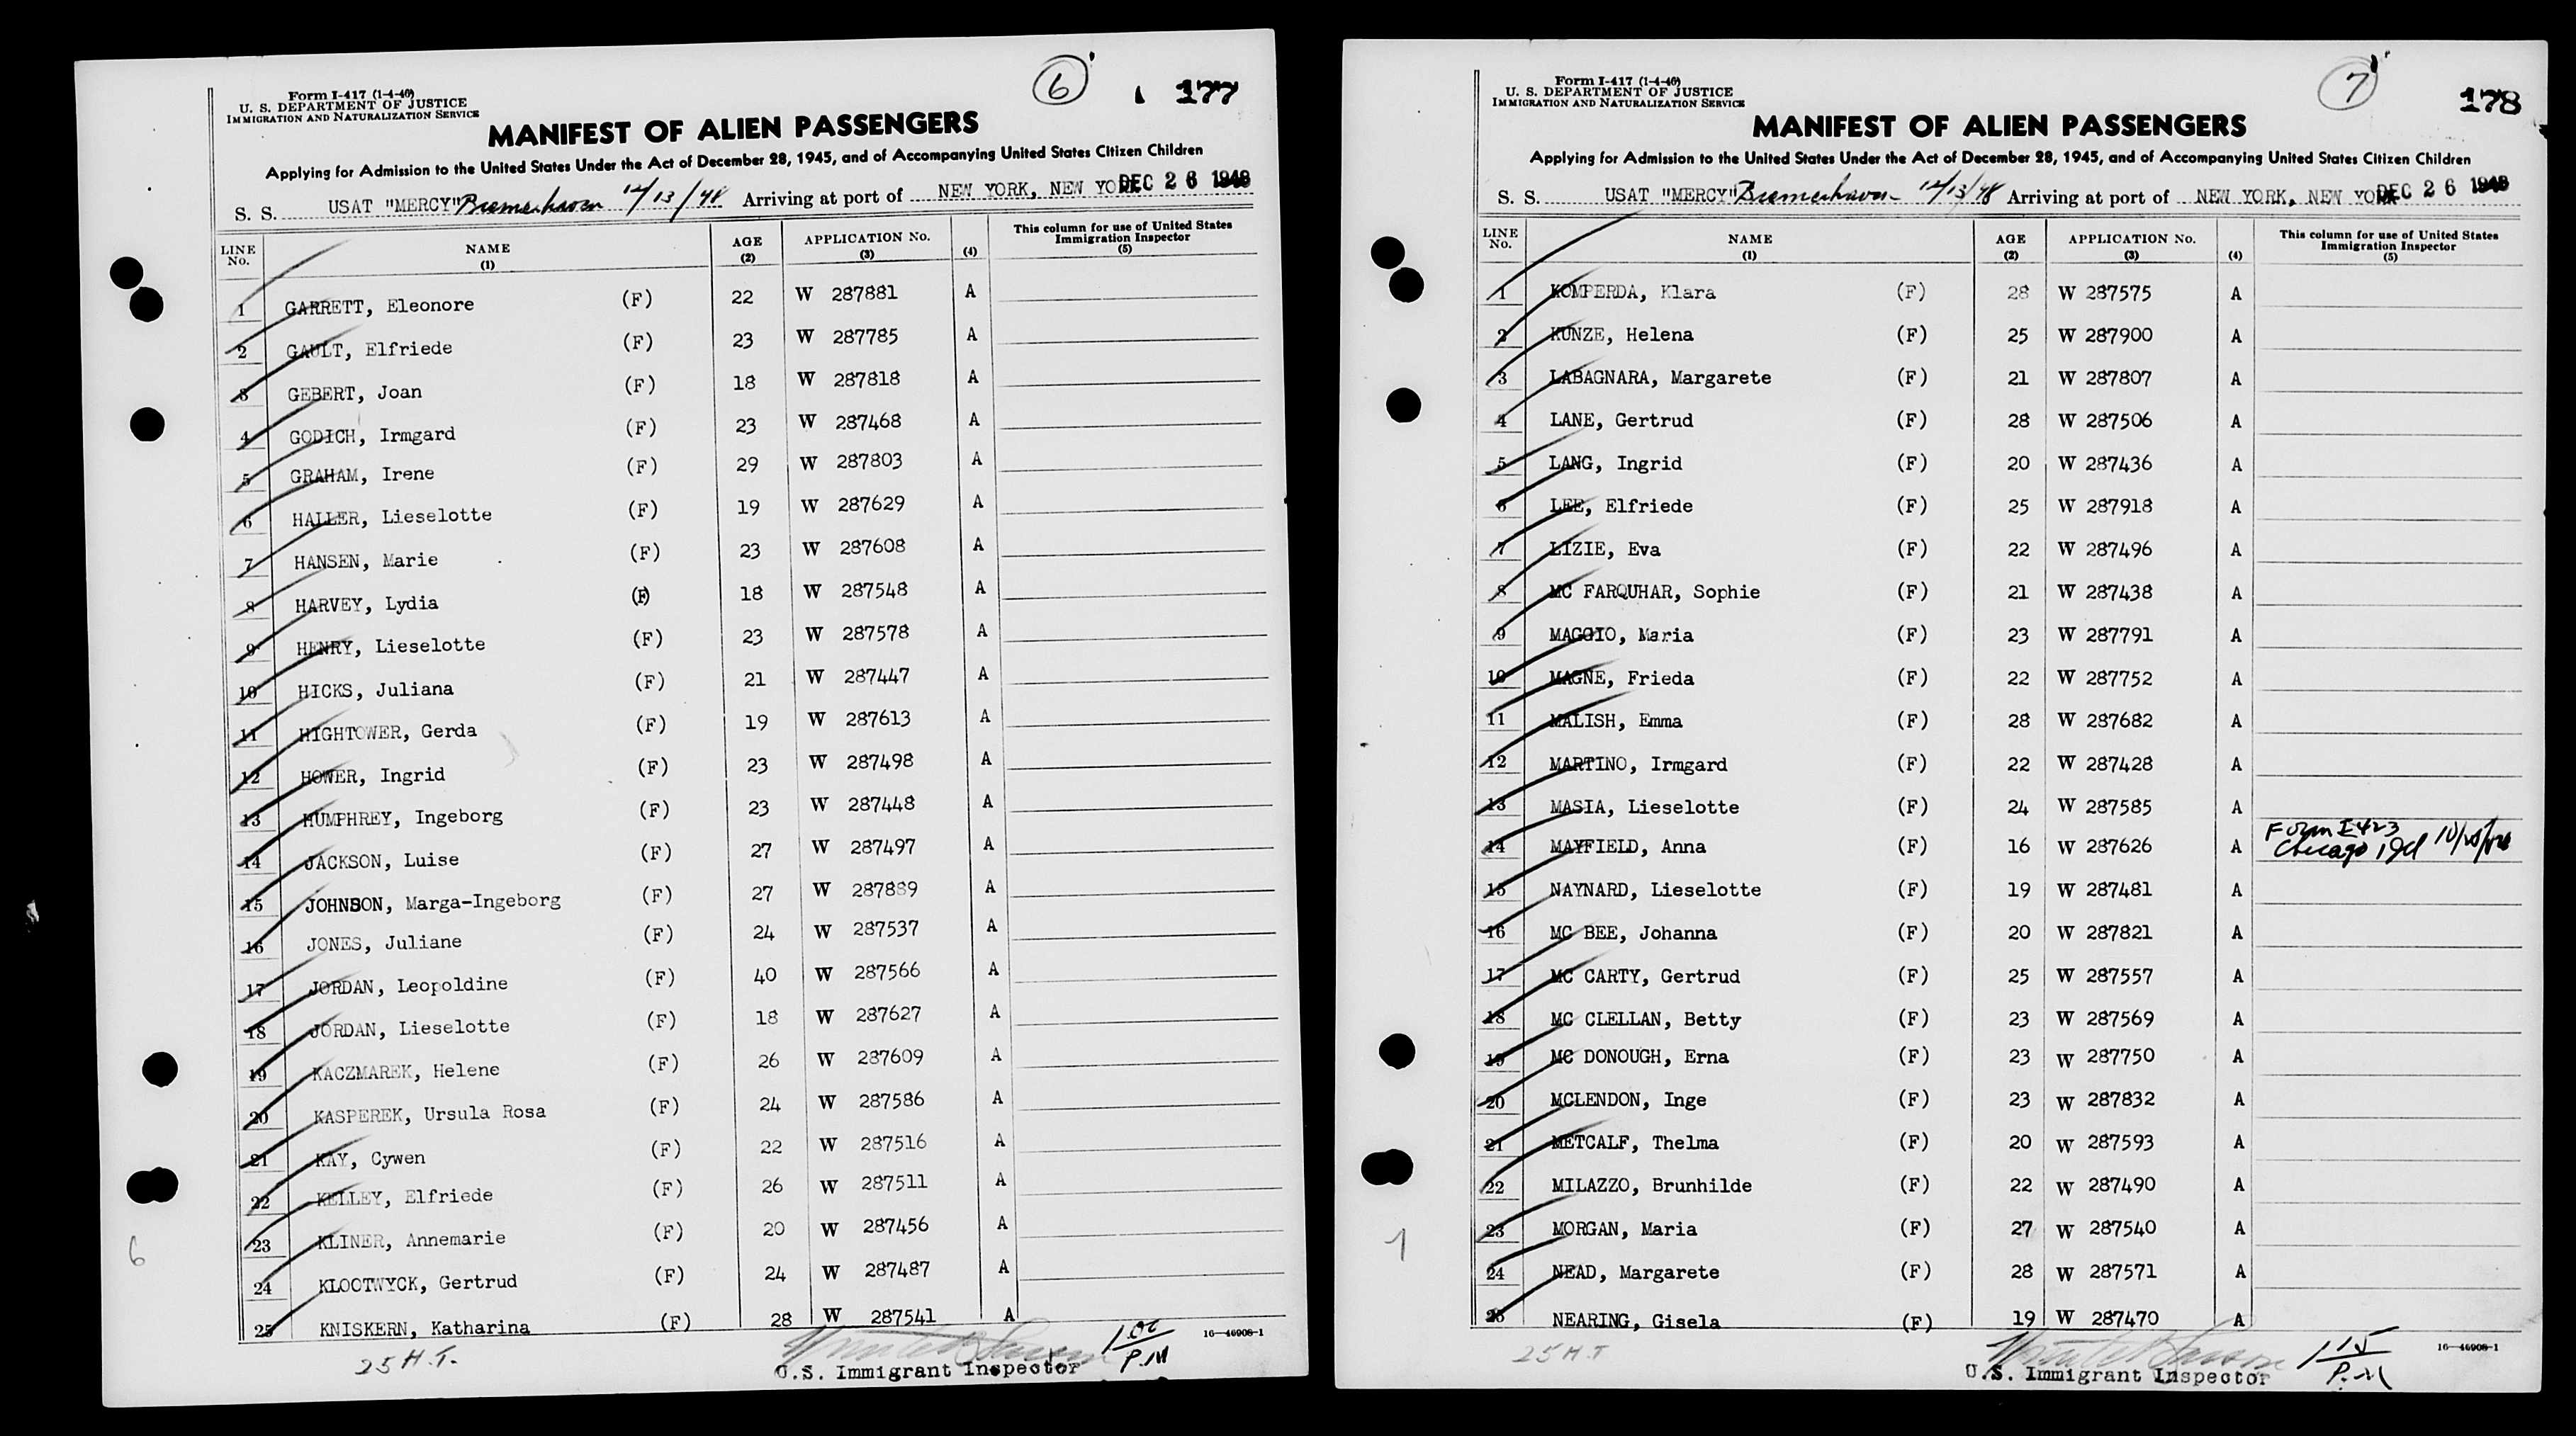 6
177
Form I-417 (1-4-46)
U. S. DEPARTMENT OF JUSTICE
IMMIGRATION AND NATURALIZATION SERVICE
MANIFEST OF ALIEN PASSENGERS
Applying for Admission to the United States Under the Act of December 28, 1945, and of Accompanying United States Citizen Children
S. S. USAT "MERCY" Bremerhaven 12/13/48 Arriving at port of NEW YORK, NEW YORK DEC 26 1948
LINE No. NAME (1) AGE (2) APPLICATION No. (3) (4) This column for use of United States Immigration Inspector (5)
1 GARRETT, Eleonore (F) 22 W 287881 A
2 GAULT, Elfriede (F) 23 W 287785 A
3 GEBERT, Joan (F) 18 W 287818 A
4 GODICH, Irmgard (F) 23 W 287468 A
5 GRAHAM, Irene (F) 29 W 287803 A
6 HALLER, Lieselotte (F) 19 W 287629 A
7 HANSEN, Marie (F) 23 W 287608 A
8 HARVEY, Lydia (F) 18 W 287548 A
9 HENRY, Lieselotte (F) 23 W 287578 A
10 HICKS, Juliana (F) 21 W 287447 A
11 HIGHTOWER, Gerda (F) 19 W 287613 A
12 HOWER, Ingrid (F) 23 W 287498 A
13 HUMPHREY, Ingeborg (F) 23 W 287448 A
14 JACKSON, Luise (F) 27 W 287497 A
15 JOHNSON, Marga-Ingeborg (F) 27 W 287889 A
16 JONES, Juliane (F) 24 W 287537 A
17 JORDAN, Leopoldine (F) 40 W 287566 A
18 JORDAN, Lieselotte (F) 18 W 287627 A
19 KACZMAREK, Helene (F) 26 W 287609 A
20 KASPEREK, Ursula Rosa (F) 24 W 287586 A
21 KAY, Cywen (F) 22 W 287516 A
22 KELLEY, Elfriede (F) 26 W 287511 A
23 KLINER, Annemarie (F) 20 W 287456 A
24 KLOOTWYCK, Gertrud (F) 24 W 287487 A
25 KNISKERN, Katharina (F) 28 W 287541 A
6
25 H.T.
U.S. Immigrant Inspector
P.M
16—46908-1
7
178
Form I-417 (1-4-46)
U. S. DEPARTMENT OF JUSTICE
IMMIGRATION AND NATURALIZATION SERVICE
MANIFEST OF ALIEN PASSENGERS
Applying for Admission to the United States Under the Act of December 28, 1945, and of Accompanying United States Citizen Children
S. S. USAT "MERCY" Bremerhaven 12/13/48 Arriving at port of NEW YORK, NEW YORK DEC 26 1948
LINE No. NAME (1) AGE (2) APPLICATION No. (3) (4) This column for use of United States Immigration Inspector (5)
1 KOMPERDA, Klara (F) 28 W 287575 A
2 KUNZE, Helena (F) 25 W 287900 A
3 LABAGNARA, Margarete (F) 21 W 287807 A
4 LANE, Gertrud (F) 28 W 287506 A
5 LANG, Ingrid (F) 20 W 287436 A
6 LEE, Elfriede (F) 25 W 287918 A
7 LIZIE, Eva (F) 22 W 287496 A
8 MC FARQUHAR, Sophie (F) 21 W 287438 A
9 MAGGIO, Maria (F) 23 W 287791 A
10 MAGNE, Frieda (F) 22 W 287752 A
11 MALISH, Emma (F) 28 W 287682 A
12 MARTINO, Irmgard (F) 22 W 287428 A
13 MASIA, Lieselotte (F) 24 W 287585 A
14 MAYFIELD, Anna (F) 16 W 287626 A Form I423 Chicago
15 NAYNARD, Lieselotte (F) 19 W 287481 A
16 MC BEE, Johanna (F) 20 W 287821 A
17 MC CARTY, Gertrud (F) 25 W 287557 A
18 MC CLELLAN, Betty (F) 23 W 287569 A
19 MC DONOUGH, Erna (F) 23 W 287750 A
20 MCLENDON, Inge (F) 23 W 287832 A
21 METCALF, Thelma (F) 20 W 287593 A
22 MILAZZO, Brunhilde (F) 22 W 287490 A
23 MORGAN, Maria (F) 27 W 287540 A
24 NEAD, Margarete (F) 28 W 287571 A
25 NEARING, Gisela (F) 19 W 287470 A
25 H.T
U.S. Immigrant Inspector
1 15 P.M
16—46908-1